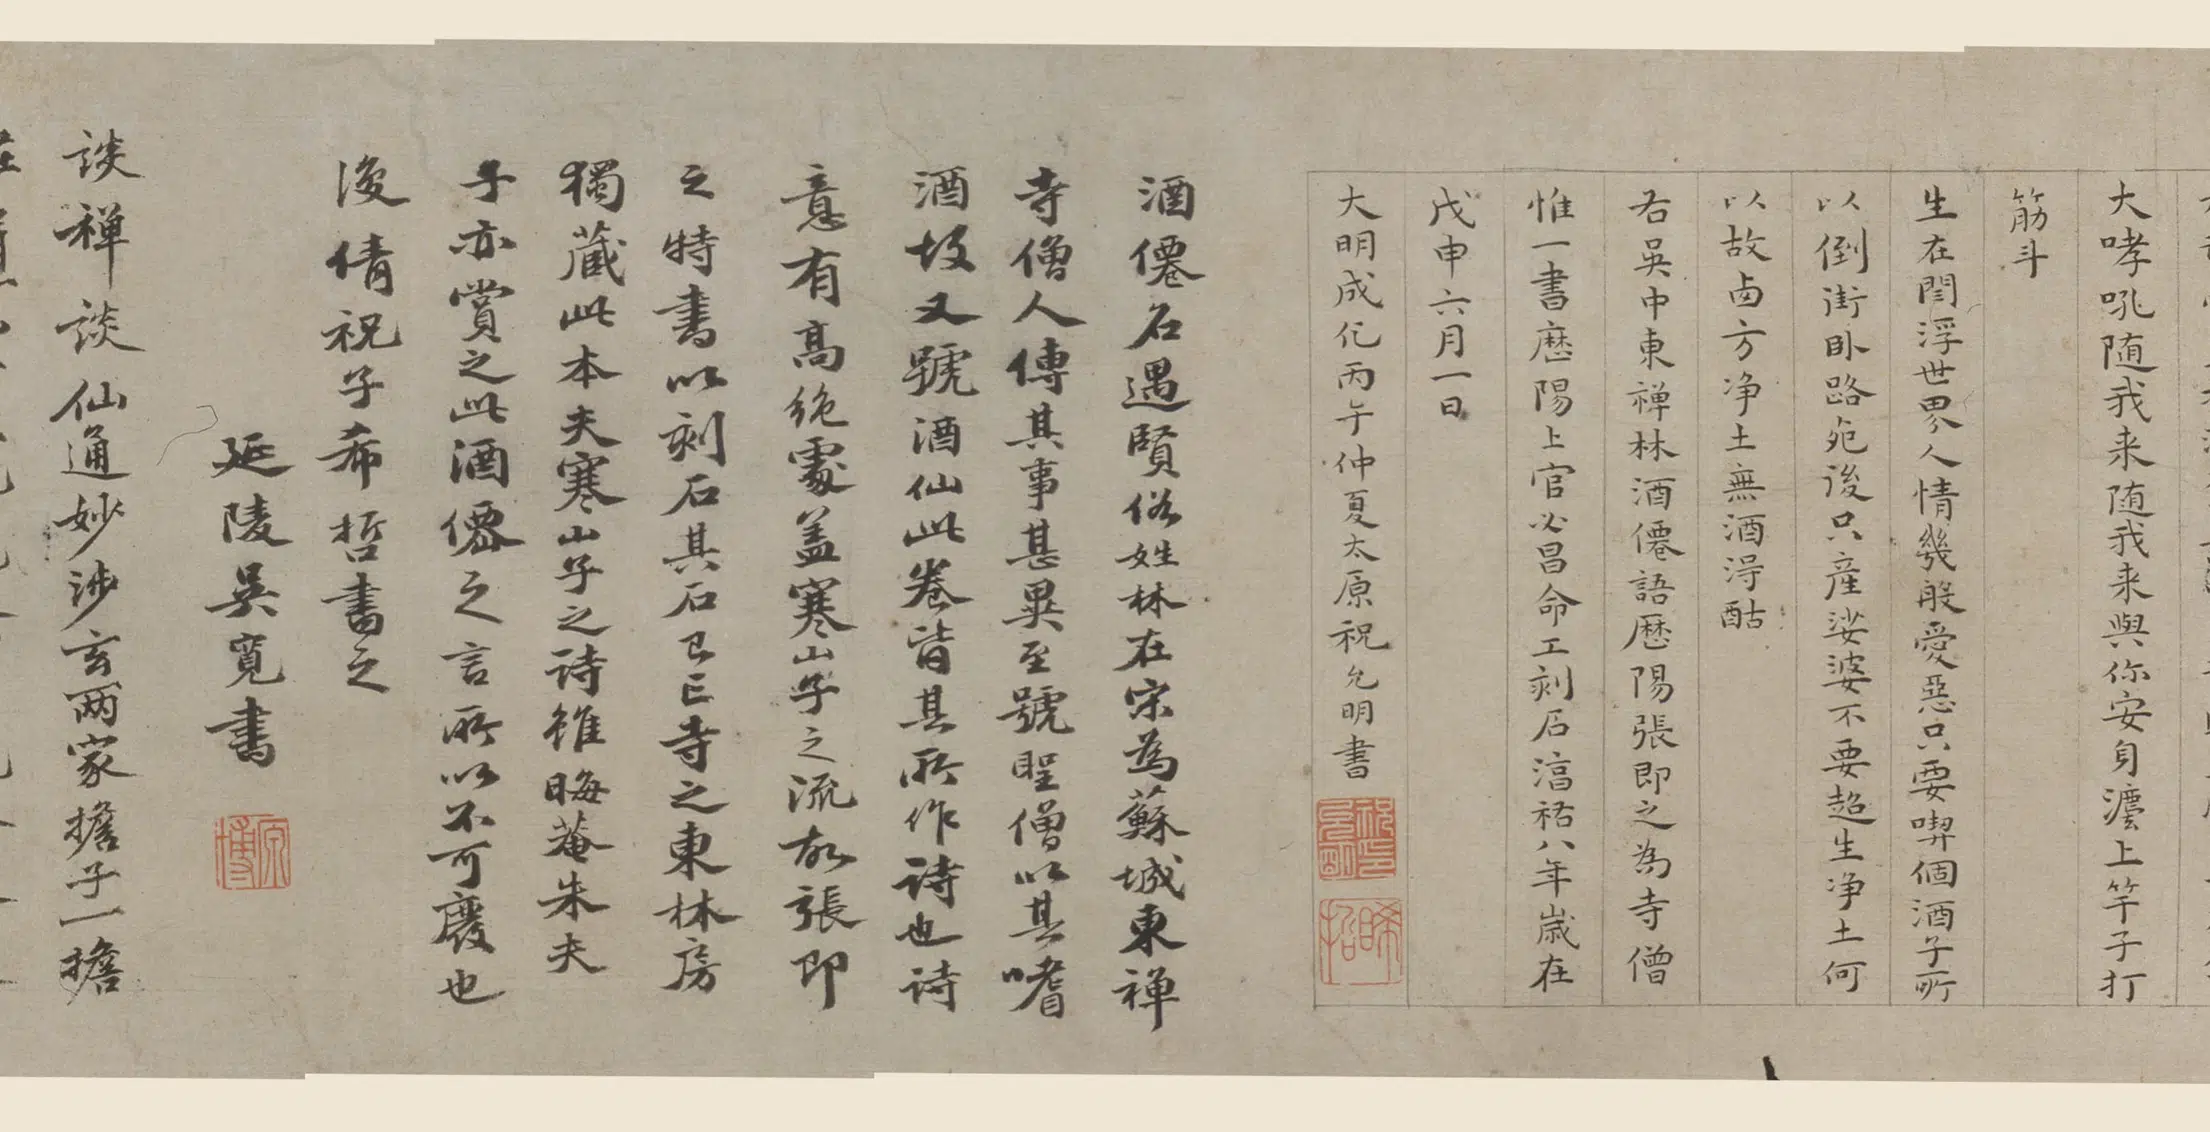 大哮吼随我来随我来與你安身㶟上竿子打
筋斗
生在閻浮世界人情幾般愛惡只要喫個酒子所
以倒街卧路死後只産娑婆不要超生净土何
以故西方净土無酒得酤
右吳中東禅林酒僊語歷陽張即之為寺僧
惟一書歷陽上官必昌命工刻石淳祐八年歲在
戊申六月一日
大明成化丙午仲夏太原祝允明書
祝允明
晞哲
酒僊名遇賢俗姓林在宋為蘇城東禅
寺僧人傳其事甚異至號聖僧以其嗜
酒故又號酒仙此卷皆其所作詩也詩
意有高絶處盖寒山子之流故張即
之特書以刻石其石已亡寺之東林房
獨蔵此本夫寒山子之詩雖晦菴朱夫
子亦賞之此酒僊之言所以不可廢也
後倩祝子希哲書之
延陵吳寬書
原博
談禅談仙通妙涉玄兩家擔子一擔